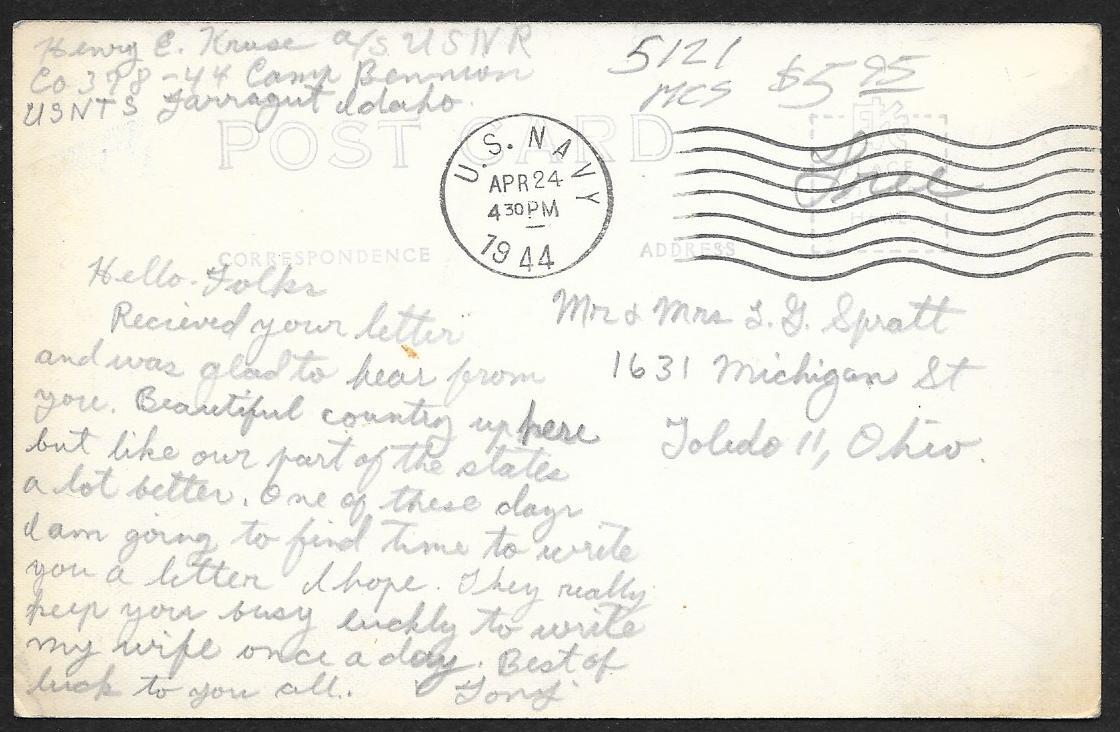 Henry E. Kruse a/s USNR
Co 398-44 Camp Bennion
USNTS Farragut Idaho.
5121
MCS
$5.95
POST CARD
U.S. NAVY
APR 24
4 30 PM
1944
PLACE
HERE
Free
CORRESPONDENCE
ADDRESS
Hello. Folks
Recieved your letter
and was glad to hear from
you. Beautiful country up here
but like our part of the states
a lot better. One of these days
I am going to find time to write
you a letter I hope. They really
keep you busy luckly to write
my wife once a day. Best of
luck to you all.
Mr & Mrs L. G. Spratt
1631 Michigan St
Toledo 11, Ohio.